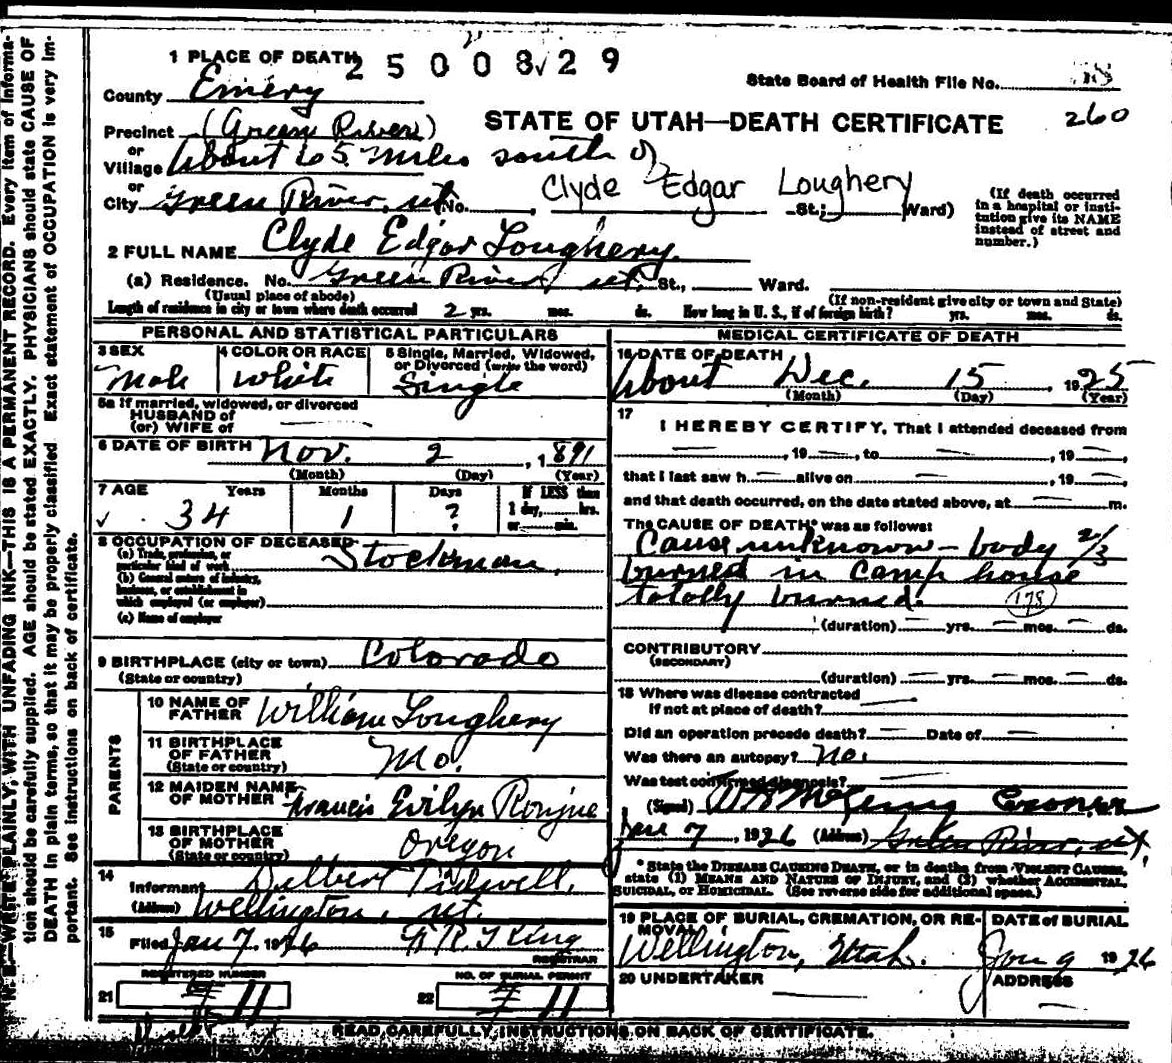 1 PLACE OF DEATH
2500829
State Board of Health File No.
County Emery
260
STATE OF UTAH—DEATH CERTIFICATE
Precinct (Green River)
or
Village About 65 miles south of
or
City Green River, ut. No. St.; Ward)
Clyde Edgar Loughery
(If death occurred in a hospital or insti-
tution give its NAME
instead of street and
number.)
2 FULL NAME Clyde Edgar Loughery.
(a) Residence. No. Green River ut. St., Ward.
(Usual place of abode)
(If non-resident give city or town and State)
Length of residence in city or town where death occurred 2 yrs. mos. ds. How long in U. S., if of foreign birth? yrs. mos. ds.
PERSONAL AND STATISTICAL PARTICULARS
3 SEX
Male
4 COLOR OR RACE
White
5 Single, Married, Widowed,
or Divorced (write the word)
Single
5a If married, widowed, or divorced
HUSBAND of
(or) WIFE of
6 DATE OF BIRTH Nov. 2, 1891
(Month) (Day) (Year)
7 AGE Years Months Days If LESS than
1 day, hrs.
or min.
34 1 ?
8 OCCUPATION OF DECEASED Stockman,
(a) Trade, profession, or
particular kind of work
(b) General nature of industry,
business, or establishment in
which employed (or employer)
(c) Name of employer
9 BIRTHPLACE (city or town) Colorado
(State or country)
PARENTS
10 NAME OF
FATHER William Loughery
11 BIRTHPLACE
OF FATHER
(State or country) Mo.
12 MAIDEN NAME
OF MOTHER Francis Evilyn
13 BIRTHPLACE
OF MOTHER
(State or country) Oregon
14
Informant Delbert Tidwell,
(Address) Wellington, ut.
15
Filed Jan 7, 1926
REGISTRAR
REGISTERED NUMBER NO. OF BURIAL PERMIT
21 11 22 11
MEDICAL CERTIFICATE OF DEATH
16 DATE OF DEATH
About Dec. 15, 1925
(Month) (Day) (Year)
17
I HEREBY CERTIFY, That I attended deceased from
—, 19—, to —, 19—
that I last saw h— alive on —, 19—
and that death occurred, on the date stated above, at — m.
The CAUSE OF DEATH* was as follows:
Cause unknown - body 2/3
burned in camp house
totally burned. 178
(duration) — yrs. — mos. — ds.
CONTRIBUTORY
(SECONDARY)
(duration) — yrs. — mos. — ds.
18 Where was disease contracted
if not at place of death? —
Did an operation precede death? — Date of —
Was there an autopsy? No.
Was test confirmed diagnosis? —
(Signed) Coroner
Jan 7, 1926 (Address) Green River, ut.
* State the DISEASE CAUSING DEATH, or in deaths from VIOLENT CAUSES,
state (1) MEANS AND NATURE OF INJURY, and (2) whether ACCIDENTAL,
SUICIDAL, or HOMICIDAL. (See reverse side for additional space.)
19 PLACE OF BURIAL, CREMATION, OR RE-
MOVAL
Wellington, Utah.
DATE of BURIAL
Jan 9 1926
20 UNDERTAKER
—
ADDRESS
—
READ CAREFULLY INSTRUCTIONS ON BACK OF CERTIFICATE.
N. B.—WRITE PLAINLY, WITH UNFADING INK—THIS IS A PERMANENT RECORD. Every item of informa-
tion should be carefully supplied. AGE should be stated EXACTLY. PHYSICIANS should state CAUSE OF
DEATH in plain terms, so that it may be properly classified. Exact statement of OCCUPATION is very im-
portant. See instructions on back of certificate.